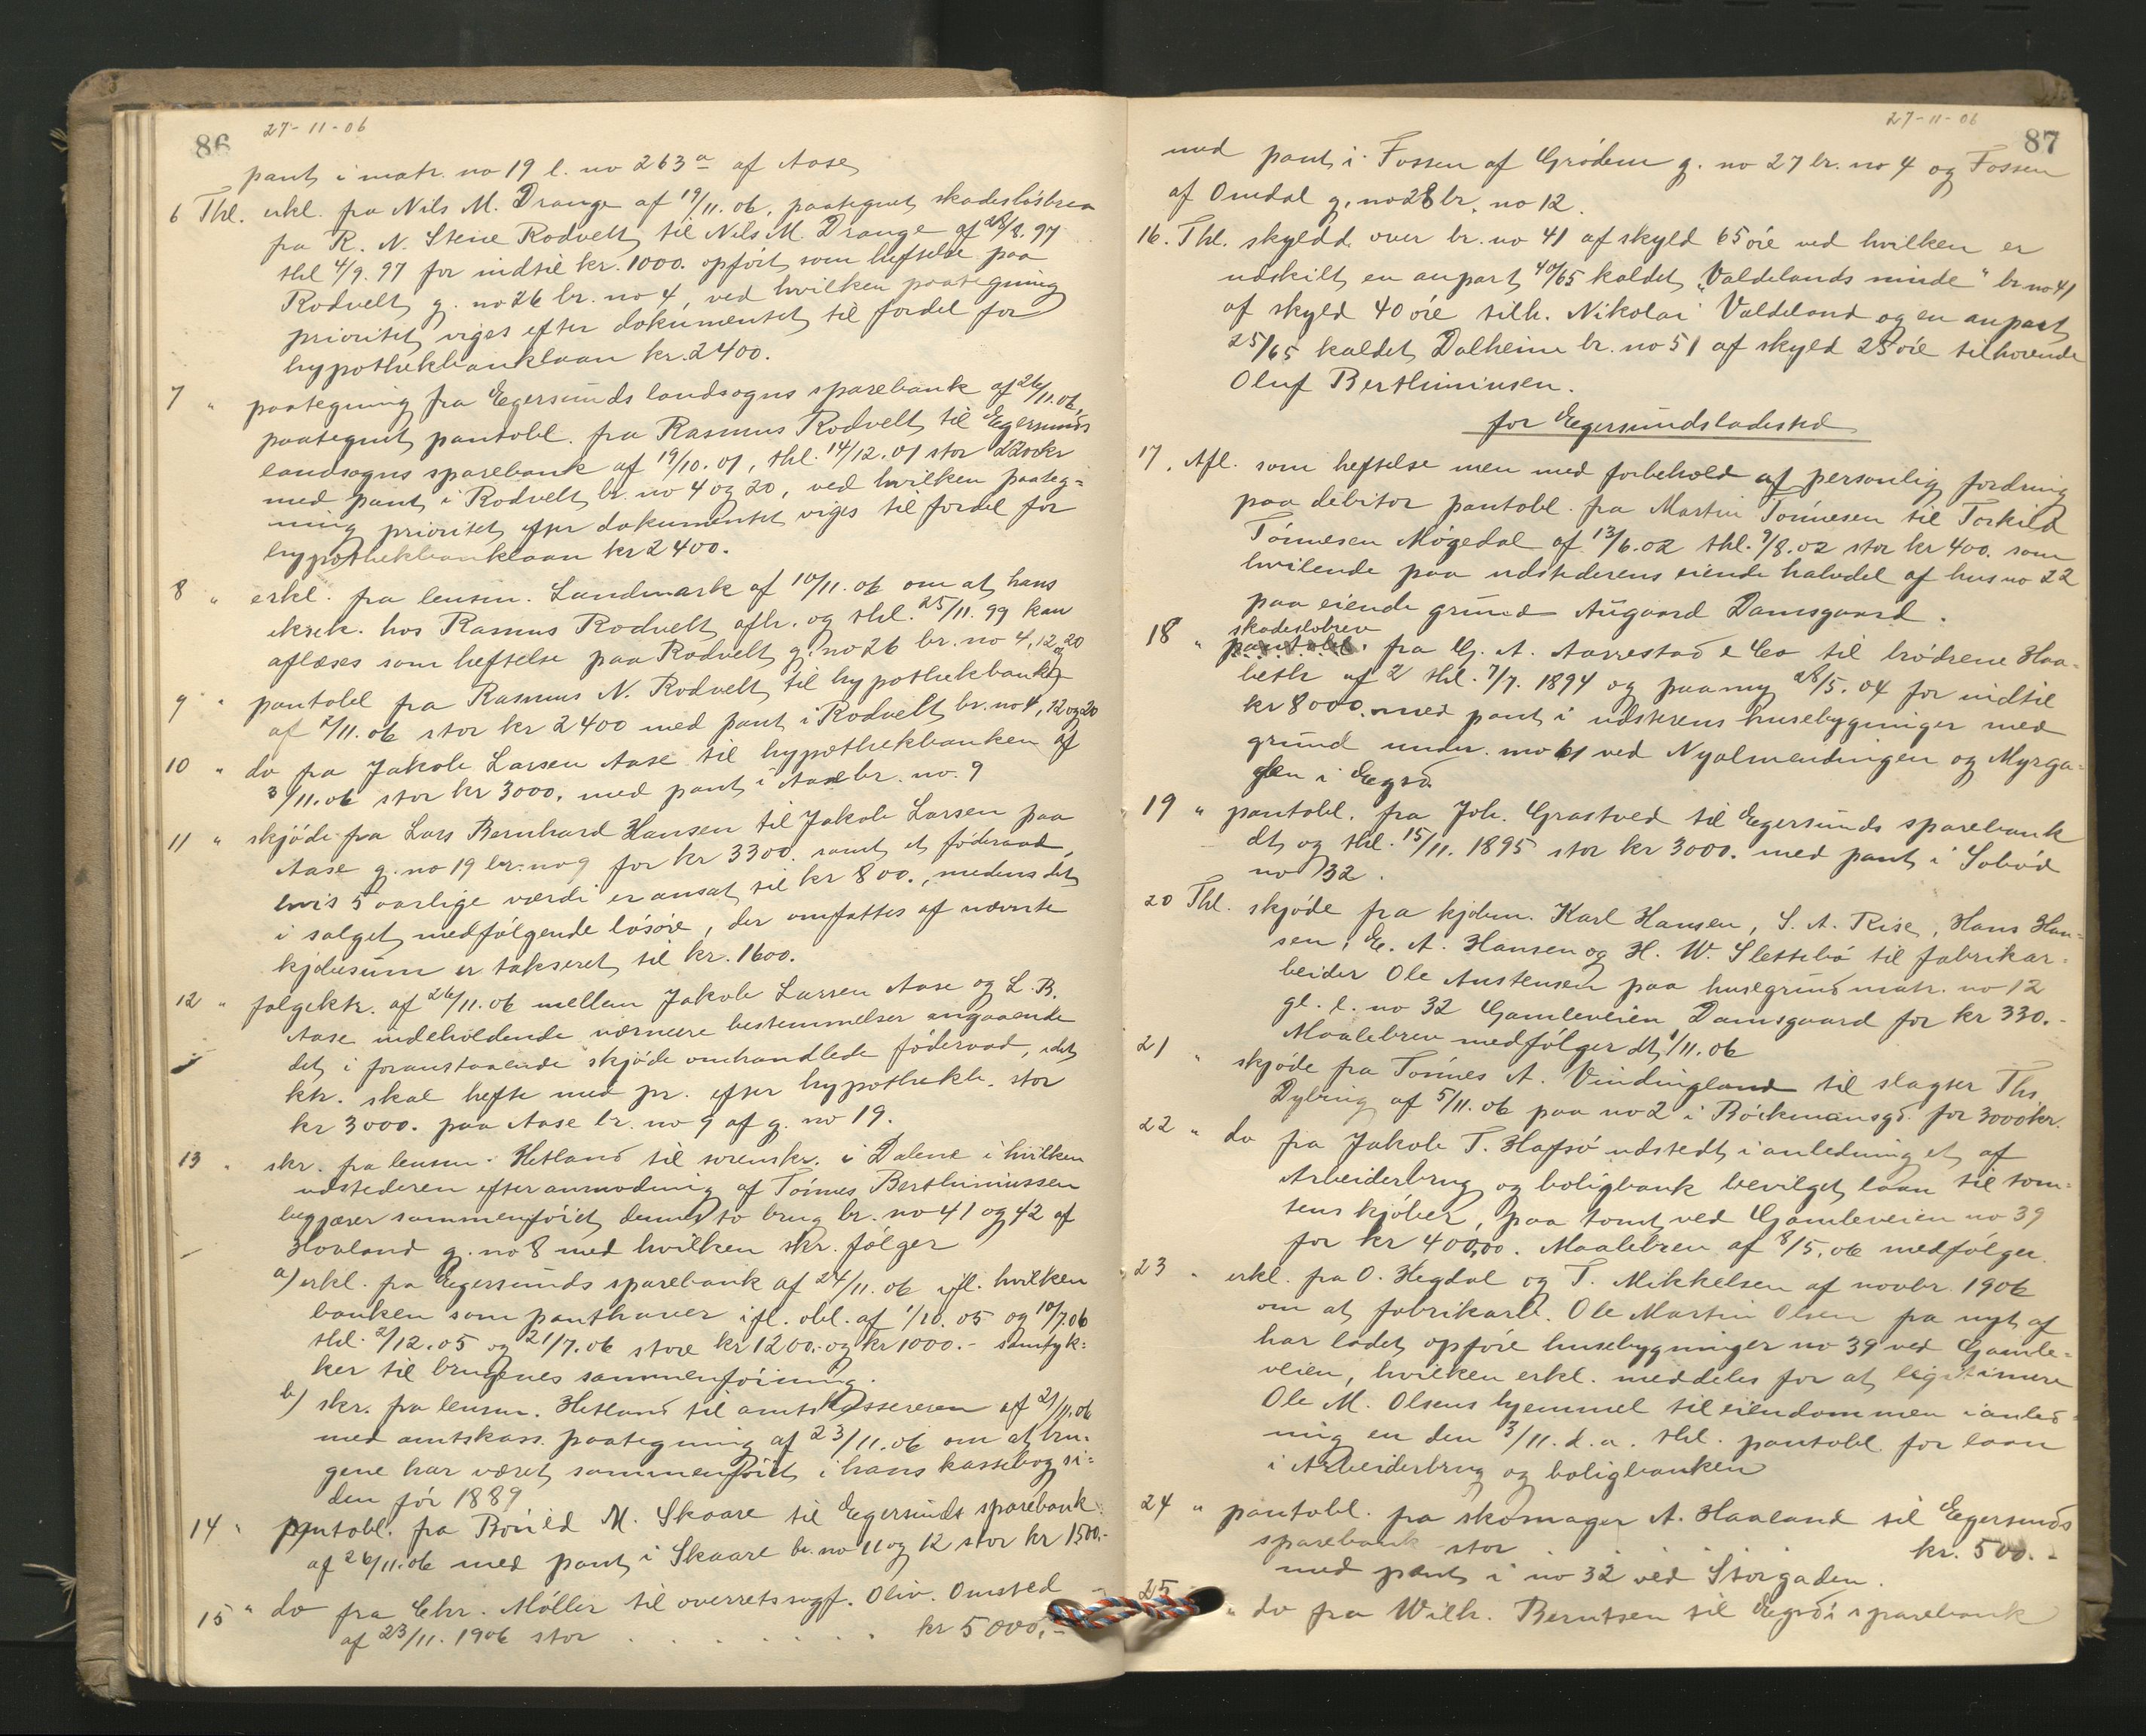 86
27-11-06
pant i matr. no 19 l. no 263a af Aase
6 Thl. erkl. fra Nils M. Drange af 19/11.06, paategnet skadeslösbrev
fra R. N. Stene Rodvelt til Nils M. Drange af 28/8.97
thl 4/9.97 for indtil kr. 1000. opfört som heftelse paa
Rodvelt g. no 26 br. no 4, ved hvilken paategning
prioritet viges efter dokumentet til fordel for
hypothekbanklaan kr. 2400.
7 " paategning fra Egersunds landsogns sparebank af 26/11.06,
paategnet pantobl. fra Rasmus Rodvelt til Egersunds
landsogns sparebank af 19/10.01, thl. 14/12.01 stor 2200kr
med pant i Rodvelt br. no 4 og 20, ved hvilken paateg=
ning prioritet efter dokumentet viges til fordel for
hypothekbanklaan kr 2400.
8 " erkl. fra lensm. Landmark af 10/11.06 om at hans
eksek. hos Rasmus Rodvelt afh. og thl. 25/11.99 kan
aflæses som heftelse paa Rodvelt g. no 26 br. no 4, 12 og 20
9 " pantobl fra Rasmus N. Rodvelt til hypothekbanken
af 2/11.06 stor kr 2400 med pant i Rodvelt br. no 4, 12 og 20
10 " do fra Jakob Larsen Aase til hypothekbanken af
3/11.06 stor kr 3000, med pant i Aase br. no. 9
11 " skjöde fra Lars Bernhard Hansen til Jakob Larsen paa
Aase g. no 19 br. no 9 for kr 3300. samt et föderaad,
hvis 5 aarlige værdi er ansat til kr 800., medens det
i salget medfölgende lösöre, der omfattes af nævnte
kjöbesum er takseret til kr. 1600.
12 " folgektr. af 26/11.06 mellem Jakob Larsen Aase og L. B.
Aase indeholdende nærmere bestemmelser angaaende
det i foranstaaende skjöde omhandlede föderaad, idet
ktr. skal hefte med pr. efter hypothekb. stor
kr 3000. paa Aase br. no 9 af g. no 19.
13 " skr. fra lensm. Hetland til sorenskr. i Dalene i hvilken
udstederen efter anmodning af Tönnes Berthiniussen
begjærer sammenföiet dennes to brug br. no 41 og 42 af
Hovland g. no 8 med hvilken skr. fölger
a) erkl. fra Egersunds sparebank af 24/11.06 ifl. hvilken
banken som panthaver ifl. obl. af 1/10.05 og 10/7.06
thl. 2/12.05 og 21/7.06 store kr 1200.- og kr 1000.- samtyk=
ker til brugenes sammenföining.
b) skr. fra lensm. Hetland til amtskassereren af 21/11.06
med amtskass. paategning af 23/11.06 om at bru=
gene har været sammenföiet i hans kassebog si=
den för 1889.
14 " pantobl. fra M. Skaare til Egersunds sparebank
af 26/11.06 med pant i Skaare br. no 11 og 12 stor kr 1500.-
15 " do fra Chr. Möller til overretssagf. Oliv. Omsted
af 23/11.1906 stor . . . . . . . . kr 5000.-
27-11-06
87
med pant i Fossen af Grödem g. no 27 br. no 4 og Fossen
af Omdal g. no 28 br. no 12.
16. Thl. skyldd. over br. no 41 af skyld 65 öre ved hvilken er
udskilt en anpart 40/65 kaldet "Valdelands minde" br. no 41
af skyld 40 öre tilh. Nikolai Valdeland og en anpart
25/65 kaldet Dalheim br. no 51 af skyld 25 öre tilhorende
Oluf Berthiniusen.
for Egersundsladested
17. Afl. som heftelse men med forbehold af personlig fordring
paa debitor pantobl. fra Martin Tönnesen til Torkild
Tönnesen Mögedal af 13/6.02 thl. 9/8.02 stor kr 400. som
hvilende paa udstederens eiende halvdel af hus no 22
paa eiende grund Augaard Damsgaard.
18 " skadeslobrev
pantobl. fra G. A. Aarrestad & Co til brödrene Haa=
beth af 2 thl. 7/7. 1894 og paany 28/5.04 for indtil
kr 8000. med pant i udsterens husebygninger med
grund under. mno 61 ved Nyalmendingen og Myrga=
den i Egsd.
19 " pantobl. fra Joh. Grastved til Egersunds sparebank
dt og thl. 15/11. 1895 stor kr 3000. med pant i Söböd
no 132.
20 Thl. skjöde fra kjöbm. Karl Hansen, S. A. Rise, Hans Han=
sen, E. A. Hansen og H. W. Slettebö til fabrikar=
beider Ole Austensen paa husegrund matr. no 12
gl. l. no 32 Gamleveien Damsgaard for kr 330.-
Maalebrev medfölger dt 1/11.06
21 " skjöde fra Tönnes A. Vindingland til slagter Ths
Dybing af 5/11.06 paa no 2 i Böckmansgd. for 3000kr.
22 " do fra Jakob T. Hafsö udstedt i anledning et af
Arbeiderbrug og boligbank bevilget laan til tom=
tens kjöber, paa tomt ved Gamleveien no 39
for kr 400,00. Maalebrev af 8/5.06 medfölger.
23 " erkl. fra O. Hegdal og T. Mikkelsen af novbr. 1906
om at fabrikarb. Ole Martin Olsen fra nyt af
har ladet opföre husebygninger no 39 ved Gamle=
veien, hvilken erkl. meddeles for at legitimere
Ole M. Olsens hjemmel til eiendommen i anled=
ning en den 3/11. d.a. thl. pantobl. for laan
i Arbeiderbrug og boligbanken
24 " pantobl. fra skomager A. Haaland til Egersunds
sparebank stor kr. 500.-
med pant i no 32 ved Storgaden.
25 " do fra Wilh. Berntsen til Egsds sparebank